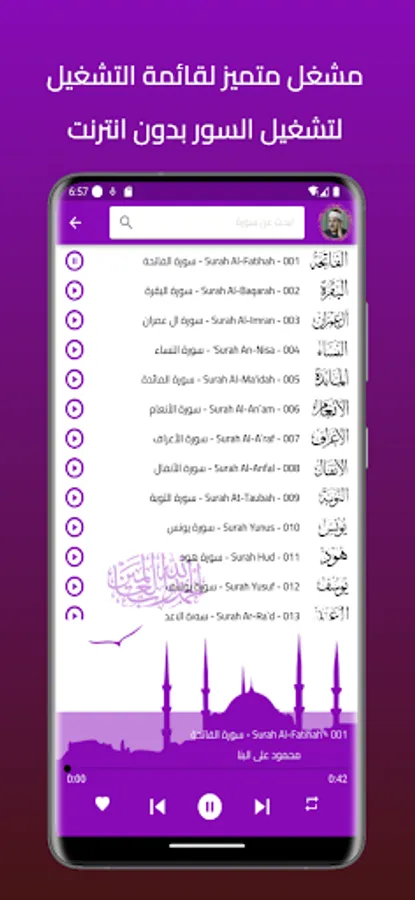 مشغل متميز لقائمة التشغيل
لتشغيل السور بدون انترنت
6:57
ابحث عن سورة
001 - Surah Al-Fatihah - سورة الفاتحة الفاتحة
002 - Surah Al-Baqarah - سورة البقرة البقرة
003 - Surah Al-Imran - سورة آل عمران آل عمران
004 - Surah An-Nisa' - سورة النساء النساء
005 - Surah Al-Ma'idah - سورة المائدة المائدة
006 - Surah Al-An'am - سورة الأنعام الأنعام
007 - Surah Al-A'raf - سورة الأعراف الأعراف
008 - Surah Al-Anfal - سورة الأنفال الأنفال
009 - Surah At-Taubah - سورة التوبة التوبة
010 - Surah Yunus - سورة يونس يونس
011 - Surah Hud - سورة هود هود
012 - Surah Yusuf - سورة يوسف يوسف
013 - Surah Ar-Ra'd - سورة الرعد الرعد
الحمد لله رب العالمين
001 - Surah Al-Fatihah - سورة الفاتحة
محمود على البنا
0:00 0:42